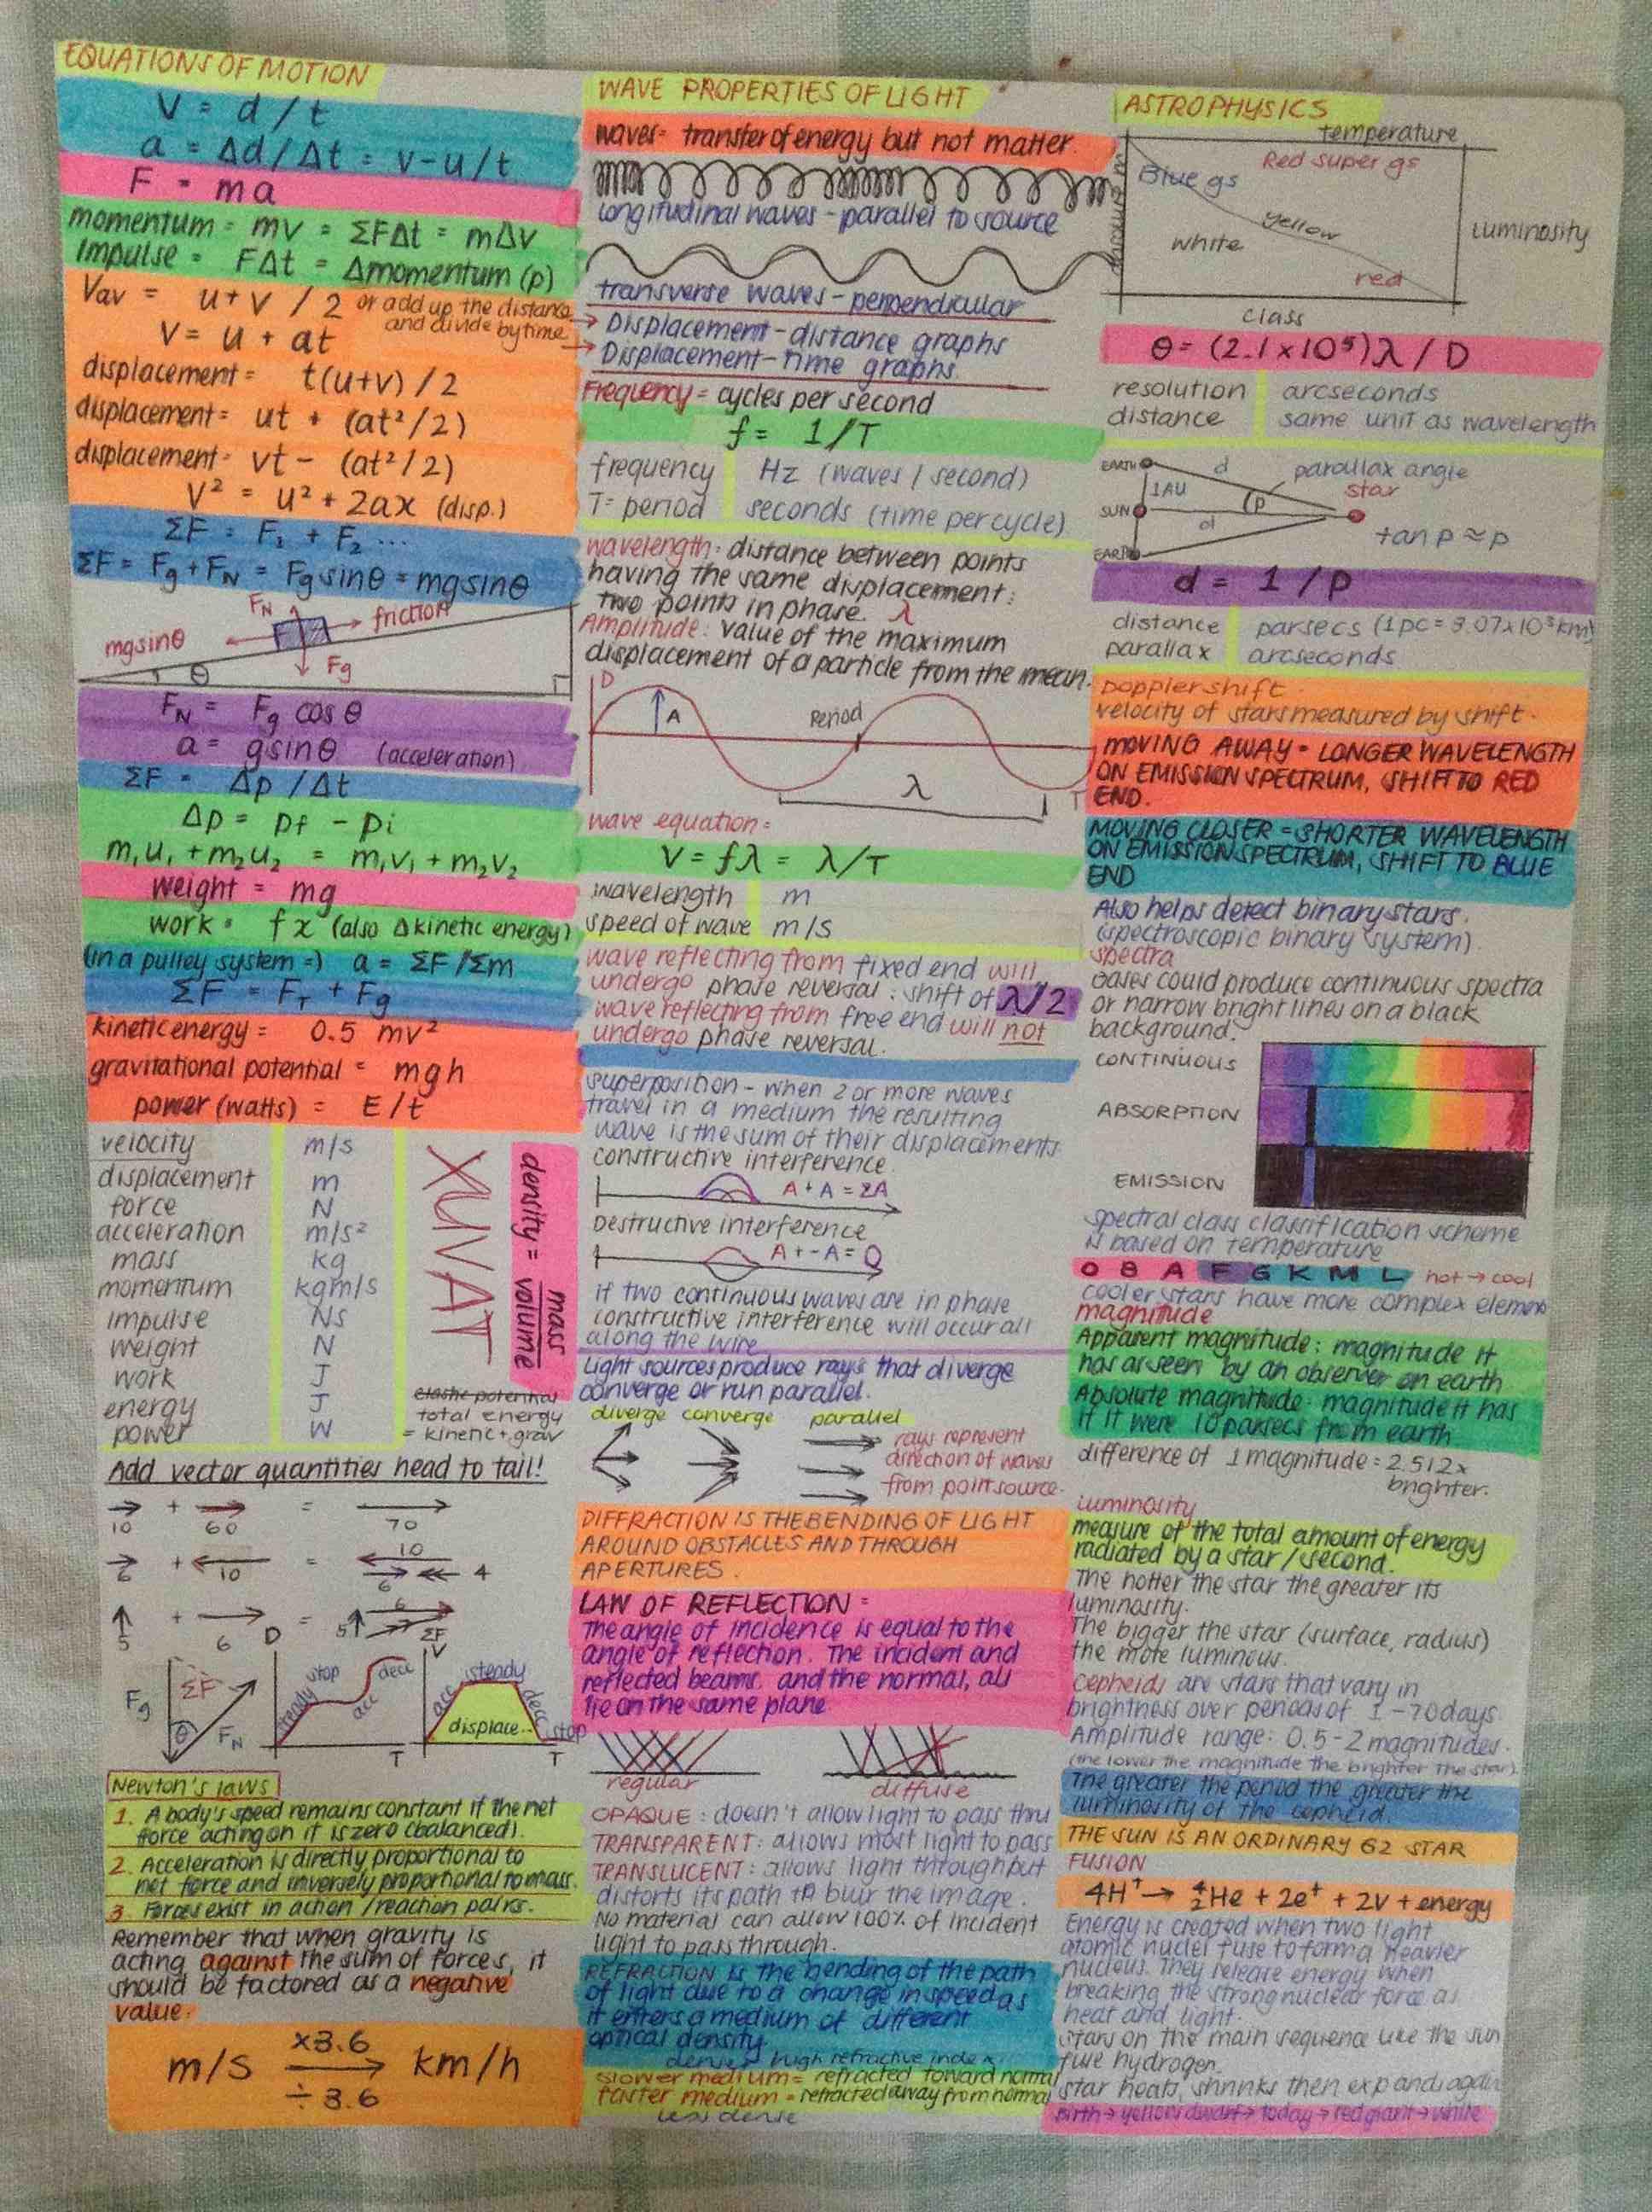 EQUATIONS OF MOTION
V = d/t
a = Δd/Δt = v-u/t
F = ma
momentum = mv = ΣFΔt = mΔv
Impulse = FΔt = Δmomentum (p)
Vav = u+v /2 or add up the distance
and divide by time
V = u + at
displacement = t(u+v)/2
displacement = ut + (at²/2)
displacement = vt - (at²/2)
V² = u² + 2ax (disp.)
ΣF = F₁ + F₂ ...
ΣF = Fg + FN = Fg sinθ = mg sinθ
FN
friction
mg sinθ
θ
Fg
FN = Fg cos θ
a = g sinθ (acceleration)
ΣF = Δp/Δt
Δp = pf - pi
m₁u₁ + m₂u₂ = m₁v₁ + m₂v₂
weight = mg
work = fx (also Δkinetic energy)
(in a pulley system =) a = ΣF/Σm
ΣF = FT + Fg
kinetic energy = 0.5 mv²
gravitational potential = mgh
power (watts) = E/t
velocity m/s
displacement m
force N
acceleration m/s²
mass kg
momentum kgm/s
impulse Ns
weight N
work J
energy J
power W
XUVAT
density = mass
volume
elastic potential
total energy
= kinetic + grav
Add vector quantities head to tail!
10 + 60 = 70
6 + 10 = 10
6 4
5 + 6 = 5 6
ΣF
Fg ΣF θ FN
D steady stop acc decc T
V acc steady decc stop displace.. T
Newton's laws
1. A body's speed remains constant if the net
force acting on it is zero (balanced).
2. Acceleration is directly proportional to
net force and inversely proportional to mass.
3. Forces exist in action/reaction pairs.
Remember that when gravity is
acting against the sum of forces, it
should be factored as a negative
value.
×3.6
m/s km/h
÷3.6
WAVE PROPERTIES OF LIGHT
waves = transfer of energy but not matter.
longitudinal waves - parallel to source
transverse waves - perpendicular
→ Displacement-distance graphs
→ Displacement-time graphs
Frequency = cycles per second
f = 1/T
frequency Hz (waves/second)
T = period seconds (time per cycle)
wavelength: distance between points
having the same displacement:
two points in phase. λ
Amplitude: value of the maximum
displacement of a particle from the mean.
D
A Period
λ T
wave equation =
V = fλ = λ/T
wavelength m
speed of wave m/s
wave reflecting from fixed end will
undergo phase reversal: shift of λ/2
wave reflecting from free end will not
undergo phase reversal.
superposition - when 2 or more waves
travel in a medium the resulting
wave is the sum of their displacements
constructive interference
A + A = 2A
Destructive interference
A + -A = 0
if two continuous waves are in phase
constructive interference will occur all
along the wire
Light sources produce rays that diverge
converge or run parallel.
diverge converge parallel
rays represent
direction of waves
from point source.
DIFFRACTION IS THE BENDING OF LIGHT
AROUND OBSTACLES AND THROUGH
APERTURES.
LAW OF REFLECTION =
The angle of incidence is equal to the
angle of reflection. The incident and
reflected beams, and the normal, all
lie on the same plane.
regular diffuse
OPAQUE: doesn't allow light to pass thru
TRANSPARENT: allows most light to pass
TRANSLUCENT: allows light through but
distorts its path to blur the image.
No material can allow 100% of incident
light to pass through.
REFRACTION is the bending of the path
of light due to a change in speed as
it enters a medium of different
optical density.
denser high refractive index
slower medium = refracted toward normal
faster medium = refracted away from normal
less dense
ASTROPHYSICS
temperature
Blue gs Red super gs
yellow
white
red
Luminosity
class
θ = (2.1×10⁵)λ/D
resolution arcseconds
distance same unit as wavelength
EARTH d parallax angle
1AU star
SUN d p
tan p ≈ p
EARTH
d = 1/p
distance parsecs (1pc = 3.07×10¹³km)
parallax arcseconds
Doppler shift
velocity of stars measured by shift.
MOVING AWAY = LONGER WAVELENGTH
ON EMISSION SPECTRUM, SHIFT TO RED
END.
MOVING CLOSER = SHORTER WAVELENGTH
ON EMISSION SPECTRUM, SHIFT TO BLUE
END
Also helps detect binary stars.
(spectroscopic binary system).
spectra
Gases could produce continuous spectra
or narrow bright lines on a black
background.
CONTINUOUS
ABSORPTION
EMISSION
spectral class classification scheme
is based on temperature
O B A F G K M L hot → cool
cooler stars have more complex element
magnitude
Apparent magnitude: magnitude it
has as seen by an observer on earth
Absolute magnitude: magnitude it has
if it were 10 parsecs from earth
difference of 1 magnitude = 2.512×
brighter.
Luminosity
measure of the total amount of energy
radiated by a star/second.
The hotter the star the greater its
luminosity.
The bigger the star (surface, radius)
the more luminous.
Cepheids are stars that vary in
brightness over periods of 1-70days.
Amplitude range: 0.5-2 magnitudes.
(the lower the magnitude the brighter the star).
The greater the period the greater the
luminosity of the cepheid.
THE SUN IS AN ORDINARY G2 STAR
FUSION
4H⁺ → ⁴₂He + 2e⁺ + 2v + energy
Energy is created when two light
atomic nuclei fuse to form a heavier
nucleus. They release energy when
breaking the strong nuclear force as
heat and light.
Stars on the main sequence like the sun
fuse hydrogen.
Star heats, shrinks then expands again
Birth → yellow dwarf → today → red giant → white